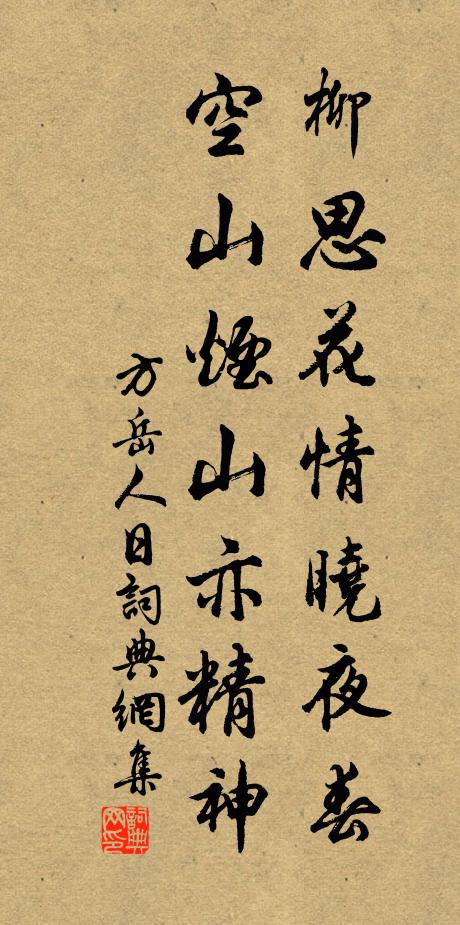 柳思花情曉夜春
空山煙山亦精神
方岳人日詞典網集
詞典网印